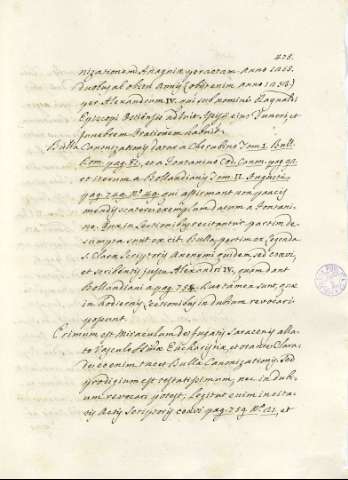 478.
nizationem Anagniæ peractam Anno 1255.
duobus ab obitu Annis (obijt enim Anno 1253.)
per Alexandrum IV. qui sub nomine Raynaldi
Episcopi Ostiensis adfuit ipsius funeri, et
funebrem Orationem habuit.
Bulla Canonizationis datur a Cherubino Tom. 1. Bull.
Rom. pag. 82., et a Fontanino Cod. Canon. pag. 92.
et iterum a Bollandianis Tom. II. Augusti
pag. 749. qui affirmant non paucis
mendis scatere exemplum datum a Fontani-
no. Quæ in Lectionibus recitantur partim de-
sumpta sunt ex cit. Bulla, partim ex Legenda
S. Claræ Scriptoris Anonymi quidem sed coævi,
et scribentis jussu Alexandri IV. quam dant
Bollandiani a pag. 754. Quæ tamen sunt, quæ
in hodiernis Lectionibus in dubium revocari
possunt.
Primum est Miraculum de fugatis Saracenis alla-
to Vasculo SSmæ Eucharistiæ, et orante Clara
de eo enim tacet Bulla Canonizationis. Sed
prodigium est testatissimum, nec in dubi-
um revocari potest; Legitur enim in cita-
tis Actis Scriptoris coævi pag. 759. Nº 21., et